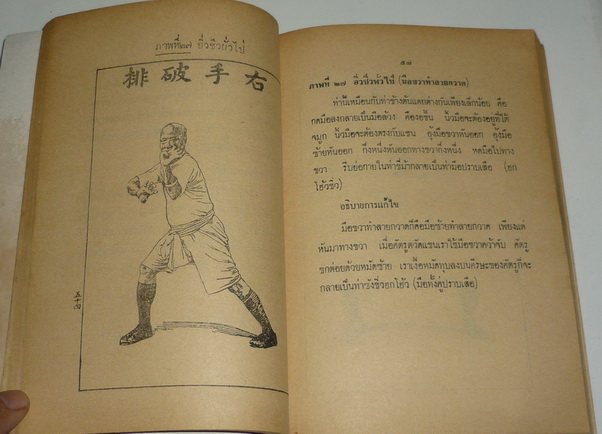 ภาพที่๒๗ ยิ่วชิวยั่วไป๋
排破手右
五十四
๕๗
ภาพที่ ๒๗ ยิ่วชิวพั่วไป๋ (มือขวาทำลายกวาด)
ท่านี้เหมือนกับท่าข้างต้นแตกต่างกันเพียงเล็กน้อย คือ
กดมือลงกลายเป็นมือล้วง คืองอขึ้น นิ้วมือจะต้องอยู่ที่ใต้
จมูก นิ้วมือจะต้องตรงกับแขน อุ้งมือขวาหันออก อุ้งมือ
ซ้ายหันออก กึ่งหนึ่งหันออกทางขวากึ่งหนึ่ง หดมือไปทาง
ขวา รีบย่อกายในท่าขี่ม้ากลายเป็นท่ามือปราบเสือ (ฮก
โฮ้วชิ่ว)
อธิบายการแก้ไข
มือขวาทำลายกวาดก็คือมือซ้ายทำลายกวาด เพียงแต่
หันมาทางขวา เมื่อศัตรูตวัดแขนเราใช้มือขวาคว้าจับ ศัตรู
ชกต่อยด้วยหมัดซ้าย เราเงื้อหมัดทุบลงบนศีรษะของศัตรูก็จะ
กลายเป็นท่าซังชิ่วฮกโฮ้ว (มือทั้งคู่ปราบเสือ)